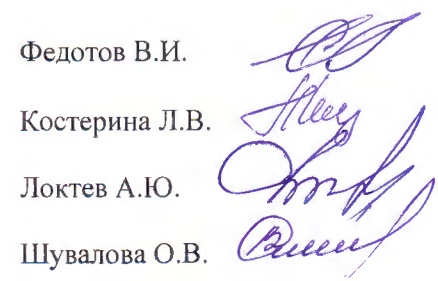 Федотов В.И.
Костерина Л.В.
Локтев А.Ю.
Шувалова О.В.